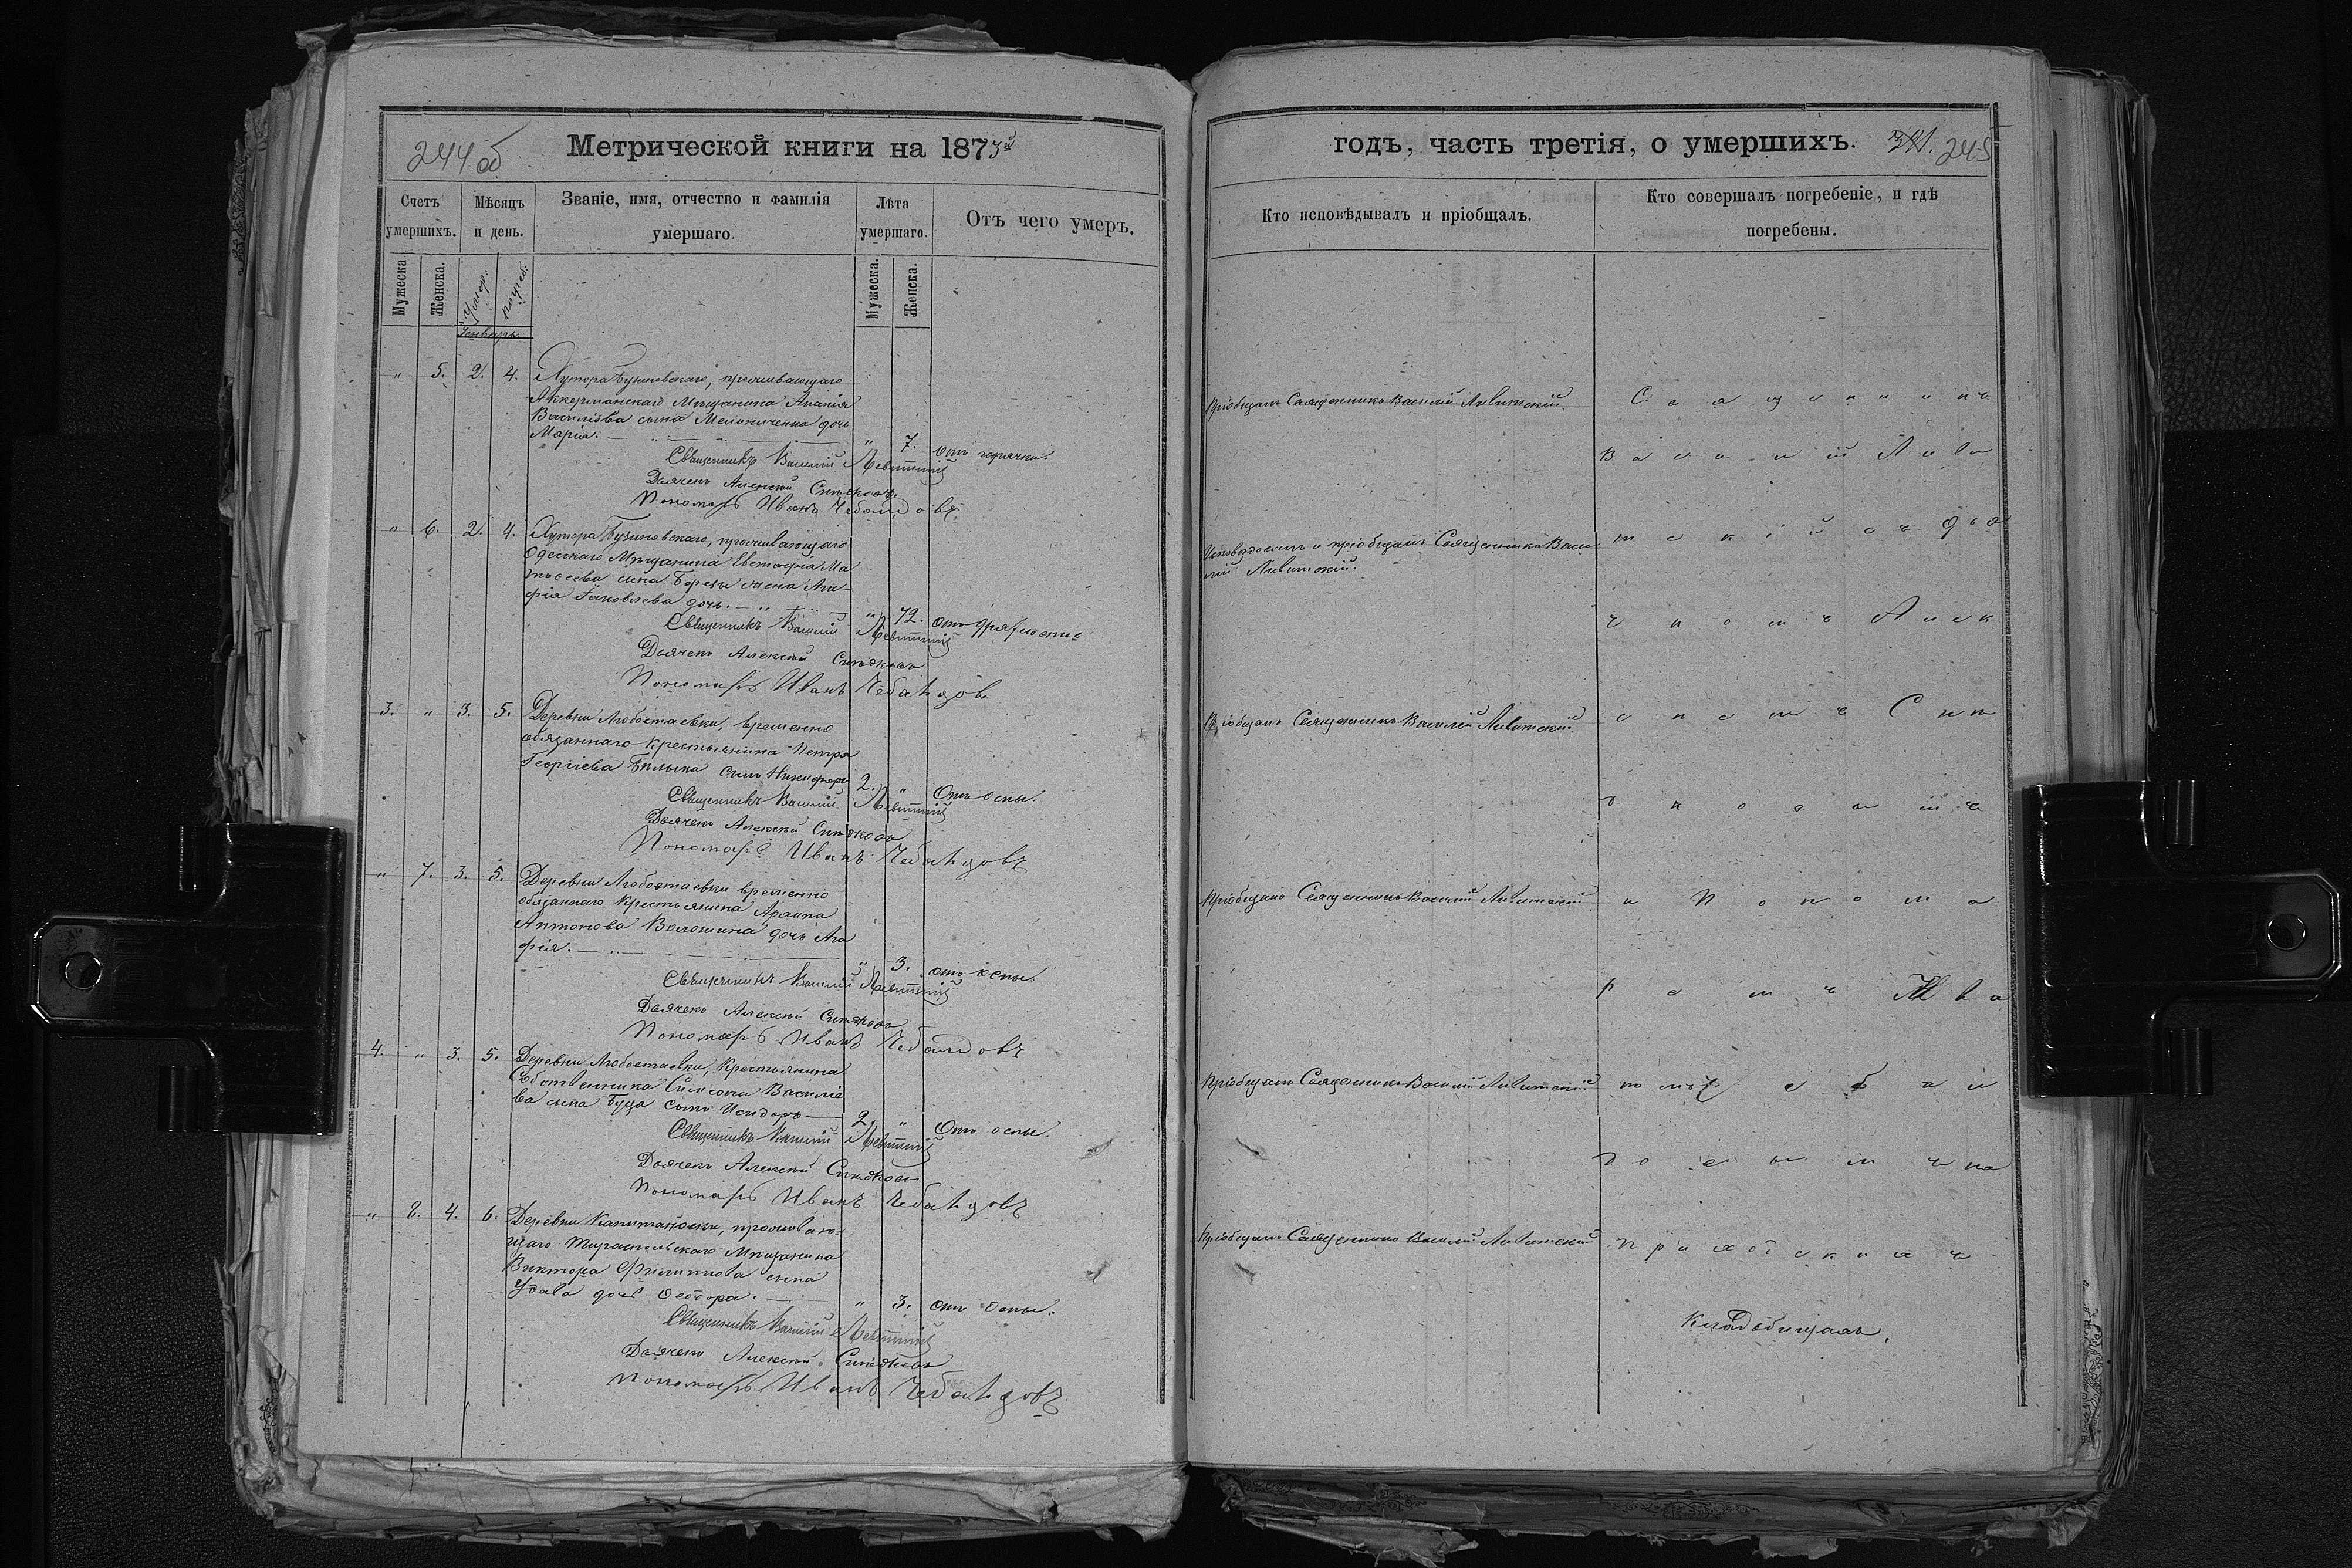 244 об
Метрической книги на 1873й
Счетъ умершихъ.
Мѣсяцъ и день.
Званіе, имя, отчество и фамилія умершаго.
Лѣта умершаго.
Отъ чего умеръ.
Мужеска.
Женска.
Умер.
погреб.
Мужеска.
Женска.
Январь.
" 5. 2. 4. Хутора Бузиновскаго, проживающаго
Аккерманскаго Мѣщанина Ананія
Васильева сына Мельниченка дочь
Марія. " 7. отъ горячки.
Священникъ Василій Левитскій
Дьячекъ Алексѣй
Пономарь Иванъ
" 6. 2. 4. Хутора Бузиновскаго, проживающаго
Одесскаго Мѣщанина Евстафія Ма
твѣева сына Березы жена Ага
фія Яковлева дочь. " 72. отъ дряхлости.
Священникъ Василій Левитскій
Дьячекъ Алексѣй
Пономарь Иванъ
3. " 3. 5. Деревни Любостаевки, временно
обязаннаго крестьянина Петра
Георгіева Бѣлыка сынъ Никифоръ 2. " Отъ оспы.
Священникъ Василій Левитскій
Дьячекъ Алексѣй
Пономарь Иванъ
" 7. 3. 5. Деревни Любостаевки временно
обязаннаго крестьянина
Антонова Волошина дочь Ага
фія. " 3. отъ оспы.
Священникъ Василій Левитскій
Дьячекъ Алексѣй
Пономарь Иванъ
4. " 3. 5. Деревни Любостаевки, крестьянина
Собственника Симеона Василіе
ва сына Буца сынъ Исидоръ 2 " Отъ оспы.
Священникъ Василій Левитскій
Дьячекъ Алексѣй
Пономарь Иванъ
" 8. 4. 6. Деревни Капитановки, проживаю-
щаго Тираспольскаго Мѣщанина
Виктора Филиппова сына
дочь Ѳеодора. " 3. отъ оспы.
Священникъ Василій Левитскій
Дьячекъ Алексѣй
Пономарь Иванъ
годъ, часть третія, о умершихъ.
245
Кто исповѣдывалъ и пріобщалъ.
Кто совершалъ погребеніе, и гдѣ погребены.
Пріобщалъ Священникъ Василій Левитскій.
Исповѣдывалъ и пріобщалъ Священникъ Васи
лій Левитскій.
Пріобщалъ Священникъ Василій Левитскій.
Пріобщалъ Священникъ Василій Левитскій
Пріобщалъ Священникъ Василій Левитскій
Пріобщалъ Священникъ Василій Левитскій
Священникъ
Василій Леви
тскій съ дья
чкомъ Алек
и Понома
ремъ Ива
на
приходскихъ
кладбищахъ.